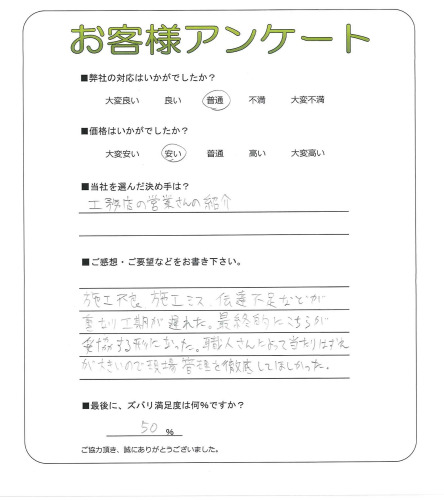 お客様アンケート
■弊社の対応はいかがでしたか?
大変良い 良い 普通 不満 大変不満
■価格はいかがでしたか?
大変安い 安い 普通 高い 大変高い
■当社を選んだ決め手は?
工務店の営業さんの紹介
■ご感想・ご要望などをお書き下さい。
施工不良、施工ミス、伝達不足などが
重なり工期が遅れた。最終的にこちらが
妥協する形になった。職人さんによって当たりはずれ
が大きいので現場管理を徹底してほしかった。
■最後に、ズバリ満足度は何%ですか?
50 %
ご協力頂き、誠にありがとうございました。